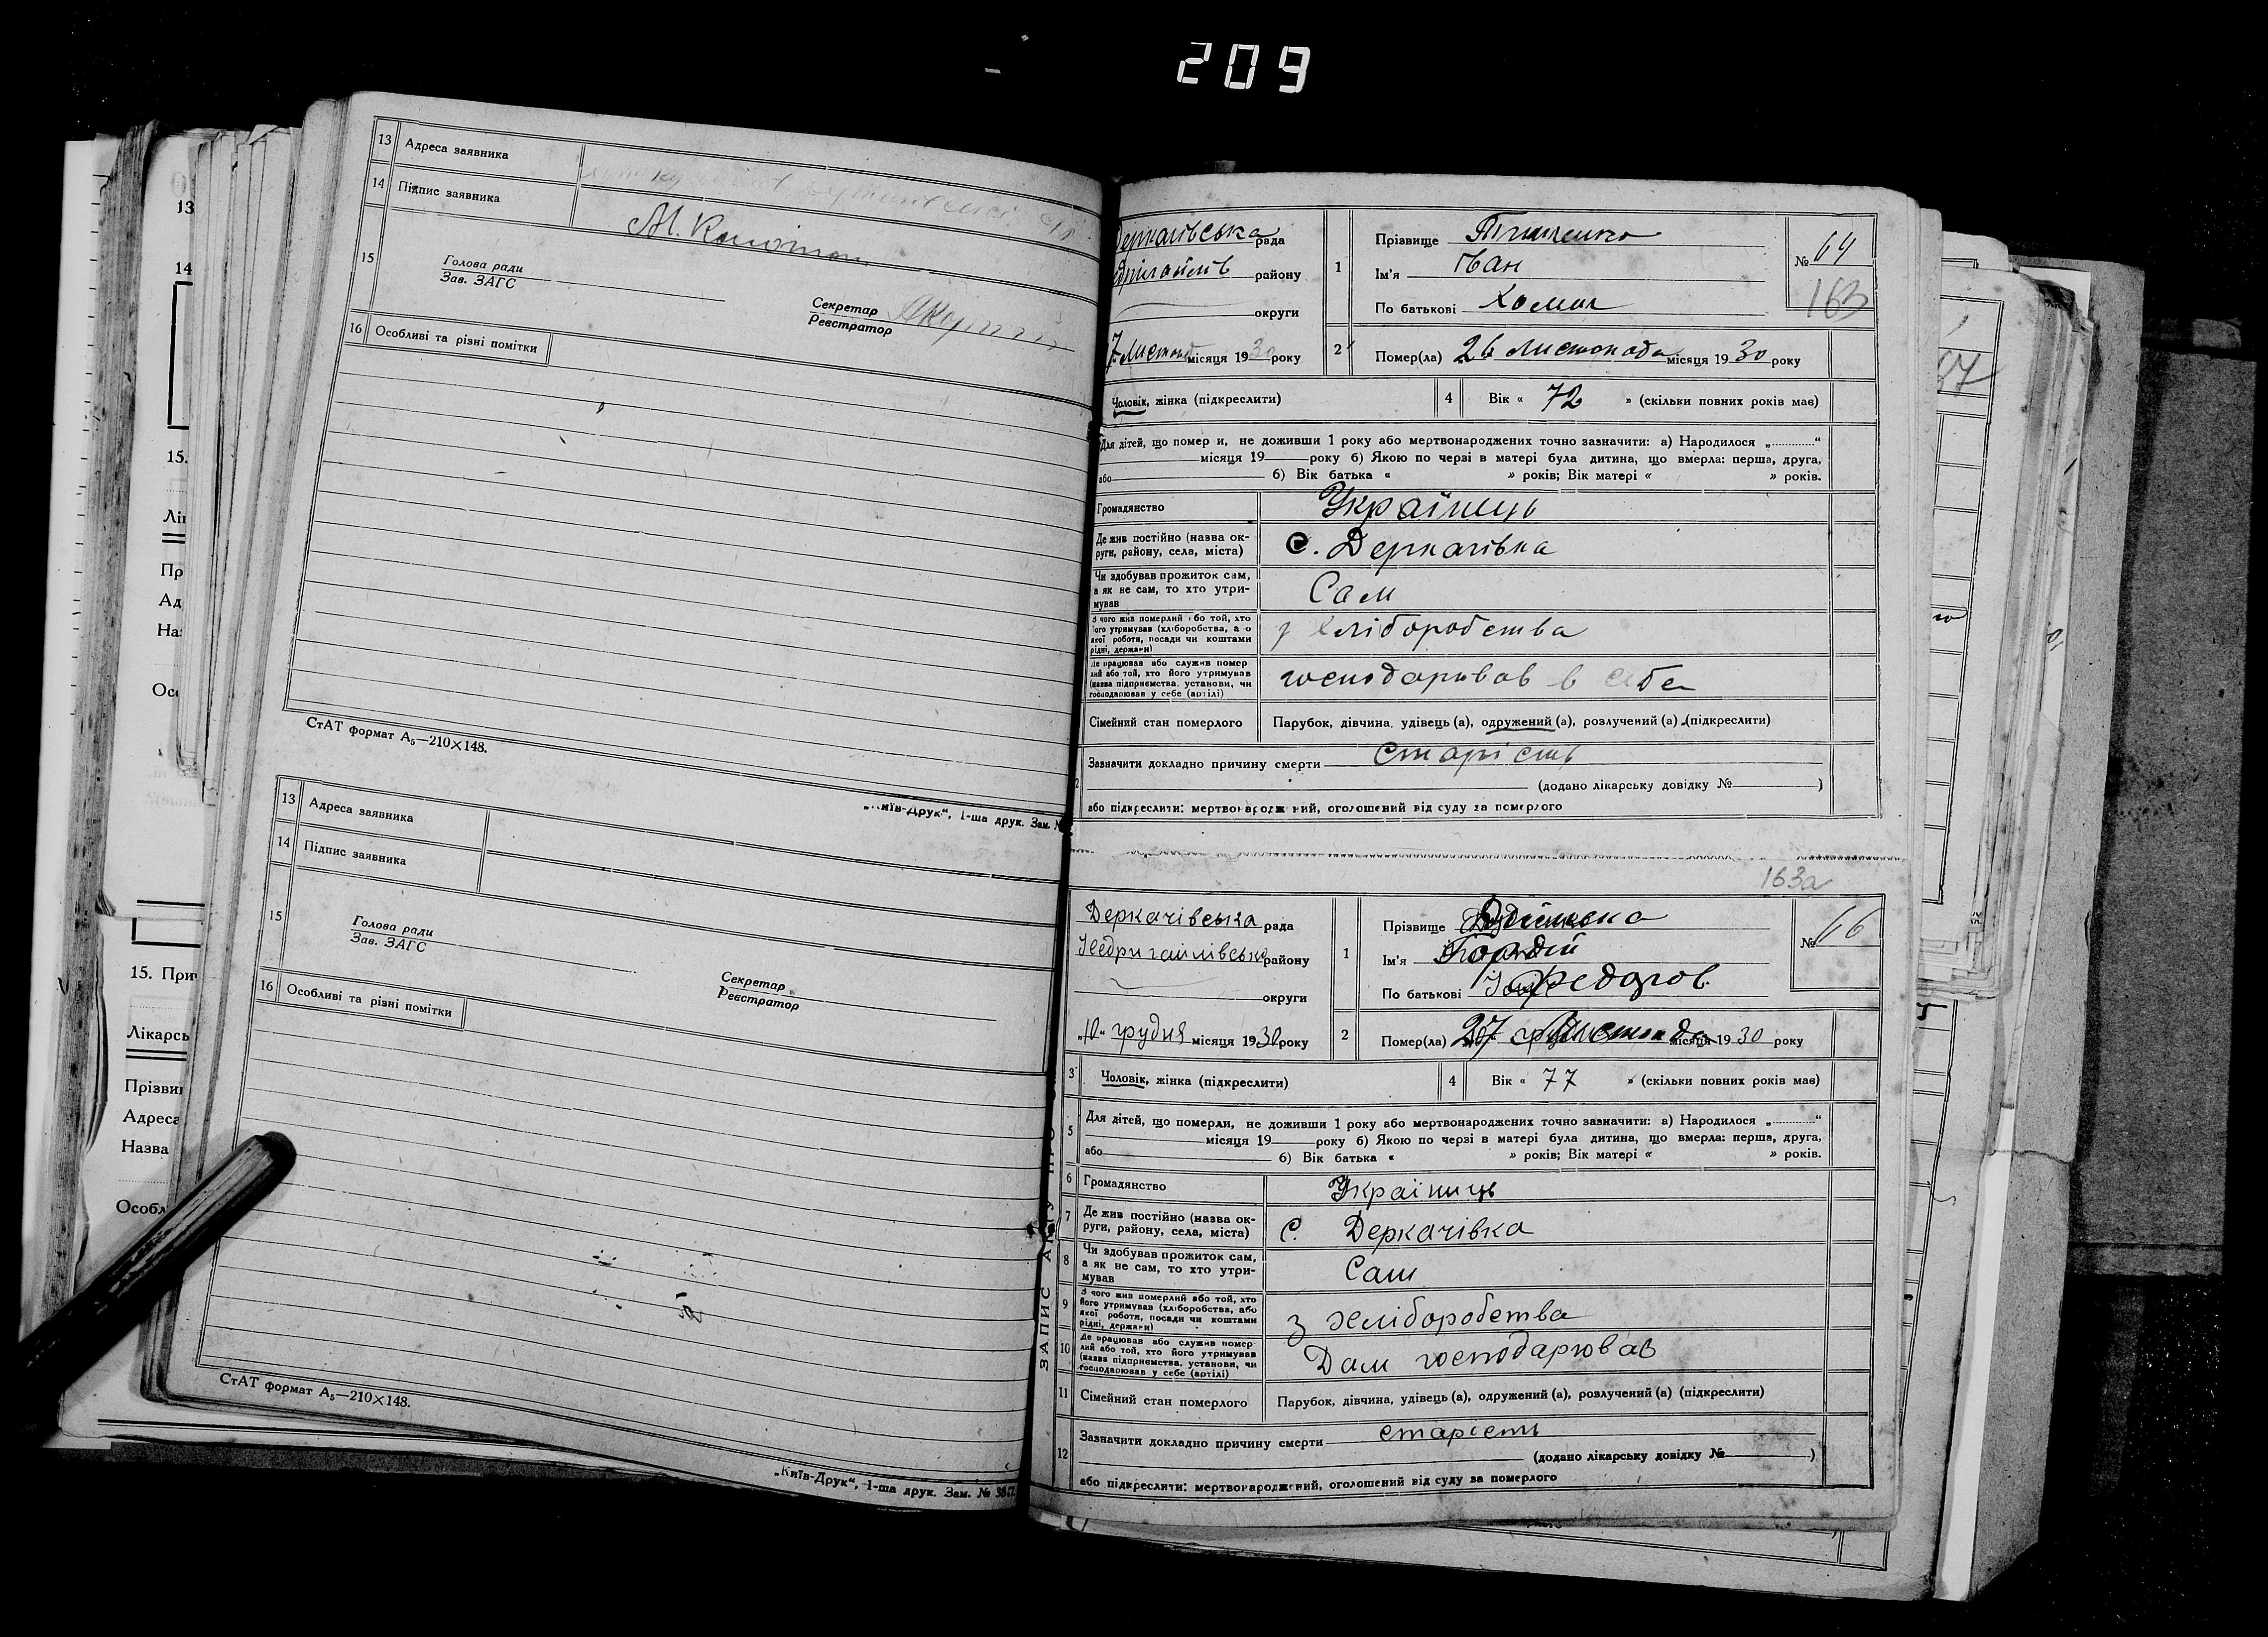 209
13 Адреса заявника
14 Підпис заявника
15
Голова ради
Зав. ЗАГС
Секретар
Реєстратор
16 Особливі та різні помітки
СтАТ формат А5—210×148.
„Київ-Друк“, 1-ша друк. Зам. №
13 Адреса заявника
14 Підпис заявника
15
Голова ради
Зав. ЗАГС
Секретар
Реєстратор
16 Особливі та різні помітки
СтАТ формат А5—210×148.
„Київ-Друк“, 1-ша друк. Зам. №
Деркачівська рада
району
округи
7 Листопад місяця 1930 року
1
Прізвище
Ім'я Іван
По батькові Хомич
№ 64
163
2 Помер(ла) 26 Листопада місяця 1930 року
Чоловік, жінка (підкреслити)
4 Вік « 72 » (скільки повних років має)
Для дітей, що померли, не доживши 1 року або мертвонароджених точно зазначити: а) Народилося „............“
місяця 19 року б) Якою по черзі в матері була дитина, що вмерла: перша, друга,
або б) Вік батька « » років; Вік матері « » років.
Громадянство Українець
Де жив постійно (назва ок-
руги, району, села, міста) С. Деркачівка
Чи здобував прожиток сам,
а як не сам, то хто утри-
мував Сам
З чого жив померлий або той, хто
його утримував (хліборобства, або
якої роботи, посади чи коштами
рідні, держави) з хліборобства
Де працював або служив помер
лий або той, хто його утримував
(назва підприємства, установи, чи
господарював у себе (артілі) господарював в себе
Сімейний стан померлого Парубок, дівчина, удівець (а), одружений (а), розлучений (а) (підкреслити)
Зазначити докладно причину смерти старість
(додано лікарську довідку № )
або підкреслити: мертвонароджений, оголошений від суду за померлого
163а
Деркачівська рада
Недригайлівсько району
округи
„10“ грудня місяця 1930 року
1
Прізвище
Ім'я Гордій
По батькові Федоров.
№ 66
2 Помер(ла) 27 Листопада місяця 1930 року
3 Чоловік, жінка (підкреслити)
4 Вік « 77 » (скільки повних років має)
5 Для дітей, що померли, не доживши 1 року або мертвонароджених точно зазначити: а) Народилося „............“
місяця 19 року б) Якою по черзі в матері була дитина, що вмерла: перша, друга,
або б) Вік батька « » років; Вік матері « » років.
6 Громадянство Україниць
7 Де жив постійно (назва ок-
руги, району, села, міста) С. Деркачівка
8 Чи здобував прожиток сам,
а як не сам, то хто утри-
мував Сам
9 З чого жив померлий або той, хто
його утримував (хліборобства, або
якої роботи, посади чи коштами
рідні, держави) з хліборобства
10 Де працював або служив помер
лий або той, хто його утримував
(назва підприємства, установи, чи
господарював у себе (артілі) Дом господарював
11 Сімейний стан померлого Парубок, дівчина, удівець (а), одружений (а), розлучений (а) (підкреслити)
12 Зазначити докладно причину смерти старість
(додано лікарську довідку № )
або підкреслити: мертвонароджений, оголошений від суду за померлого
ЗАПИС АКТУ ПРО
13
14
15.
Пр
Ад
На
15. При
Лікарсь
Прізви
Адреса
Назва